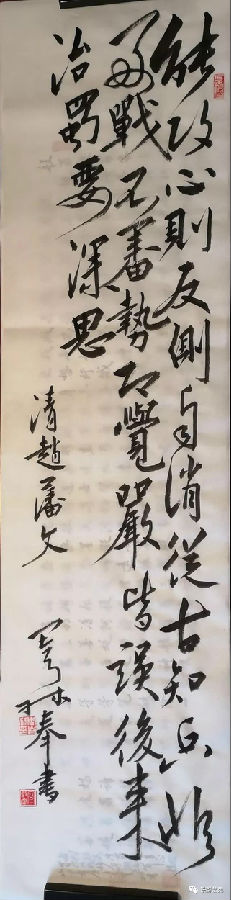 能攻心則反側自消從古知兵非
好戰不審勢即寬嚴皆誤後來
治蜀要深思
清趙藩文
奉書